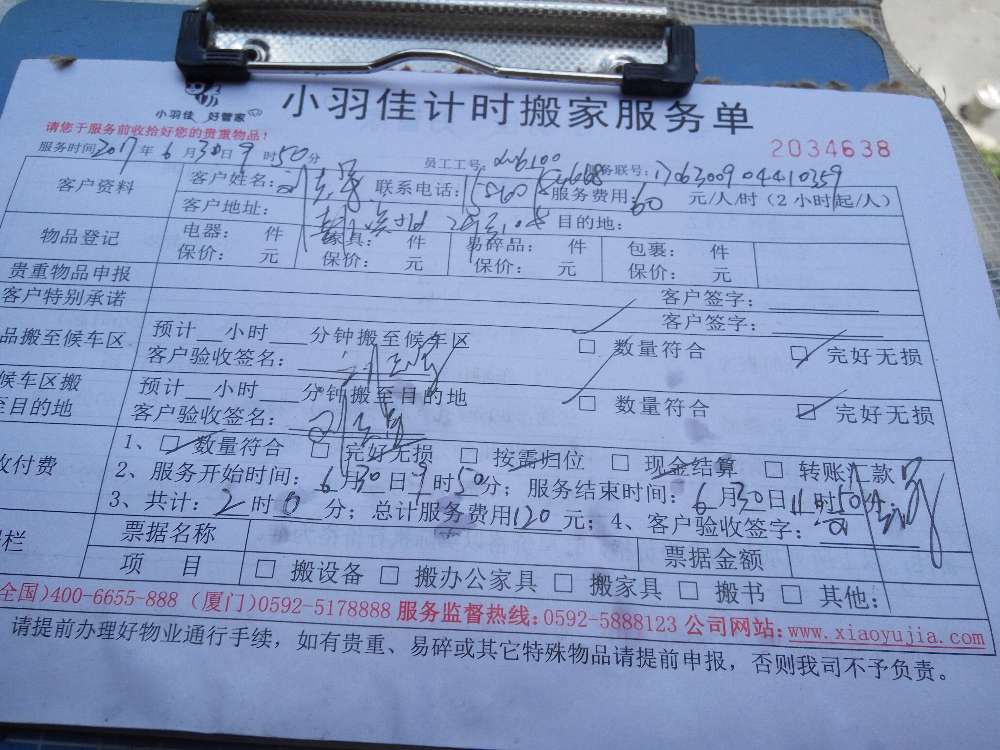 小羽佳 好管家
小羽佳计时搬家服务单
请您于服务前收拾好您的贵重物品!
2034638
服务时间2017年6月30日9时50分 员工工号: 务联号: 1706300904410359
客户资料 客户姓名: 联系电话: 服务费用:60 元/人/时(2小时起/人)
客户地址: 目的地:
物品登记 电器: 件 家具: 件 易碎品: 件 包裹: 件
保价: 元 保价: 元 保价: 元 保价: 元
贵重物品申报 客户签字:
客户特别承诺 客户签字:
品搬至候车区 预计__小时___分钟搬至候车区 □ 数量符合 □ 完好无损
客户验收签名:
候车区搬 预计__小时___分钟搬至目的地 □ 数量符合 □ 完好无损
至目的地 客户验收签名:
收付费 1、□ 数量符合 □ 完好无损 □ 按需归位 □ 现金结算 □ 转账汇款
2、服务开始时间: 6月30日9时50分; 服务结束时间: 6月30日11时50分
3、共计: 2时0分; 总计服务费用120元; 4、客户验收签字:
栏 票据名称 票据金额
项 目 □ 搬设备 □ 搬办公家具 □ 搬家具 □ 搬书 □ 其他:
全国)400-6655-888 (厦门)0592-5178888 服务监督热线:0592-5888123 公司网站:www.xiaoyujia.com
请提前办理好物业通行手续，如有贵重、易碎或其它特殊物品请提前申报，否则我司不予负责。